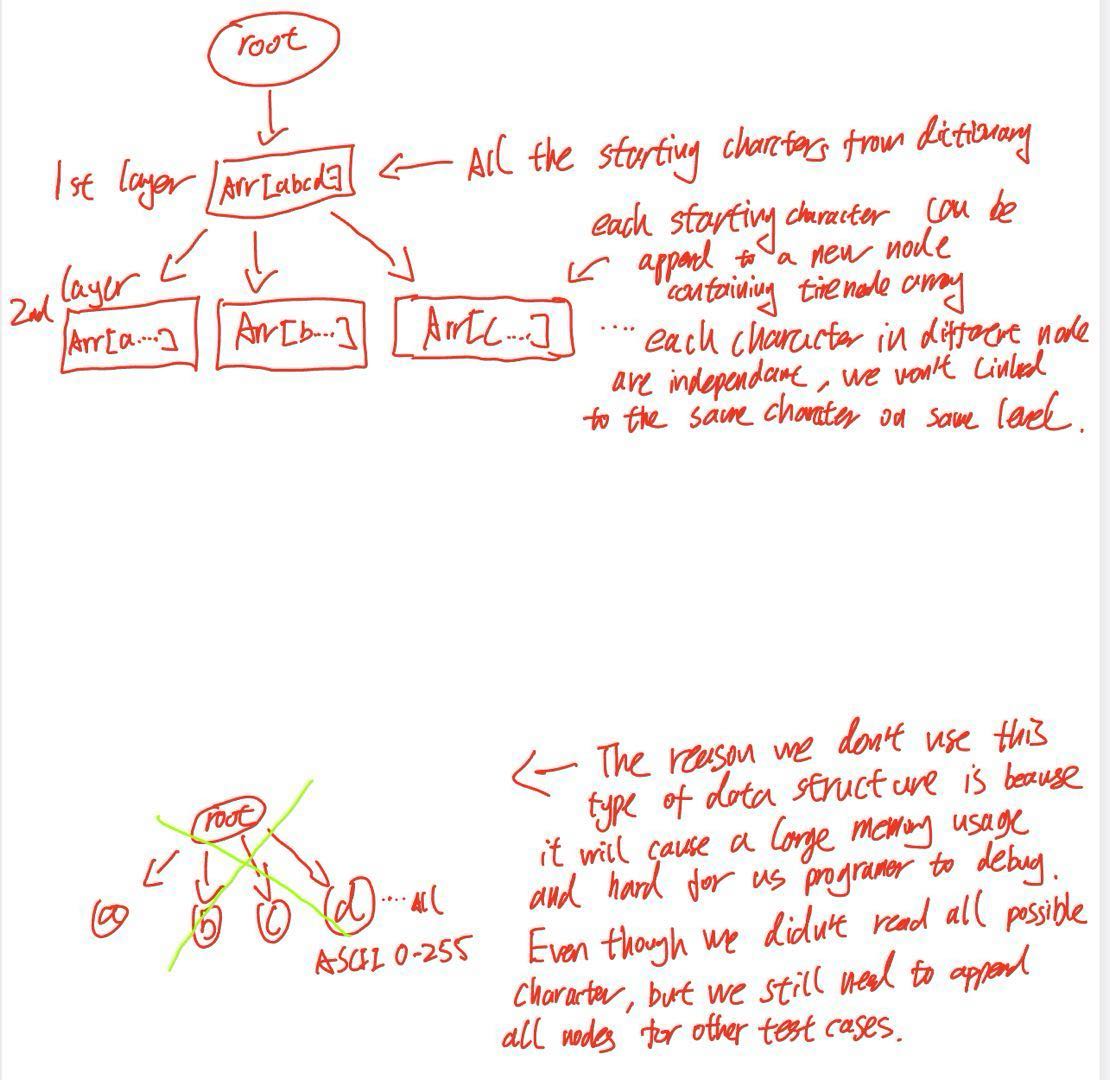 root
1st layer
Arr[abcd]
All the starting charcters from dictionary
each starting character can be
append to a new node
containing trienode array
2nd layer
Arr[a....]
Arr[b....]
Arr[c....]
....
each character in different node
are independant, we won't linked
to the same charcter on same level.
The reason we don't use this
type of data structure is beause
it will cause a large memory usage
and hard for us programer to debug.
root
a
b
c
d
.... All
ASCII 0-255
Even though we didn't read all possible
character, but we still need to append
all nodes for other test cases.